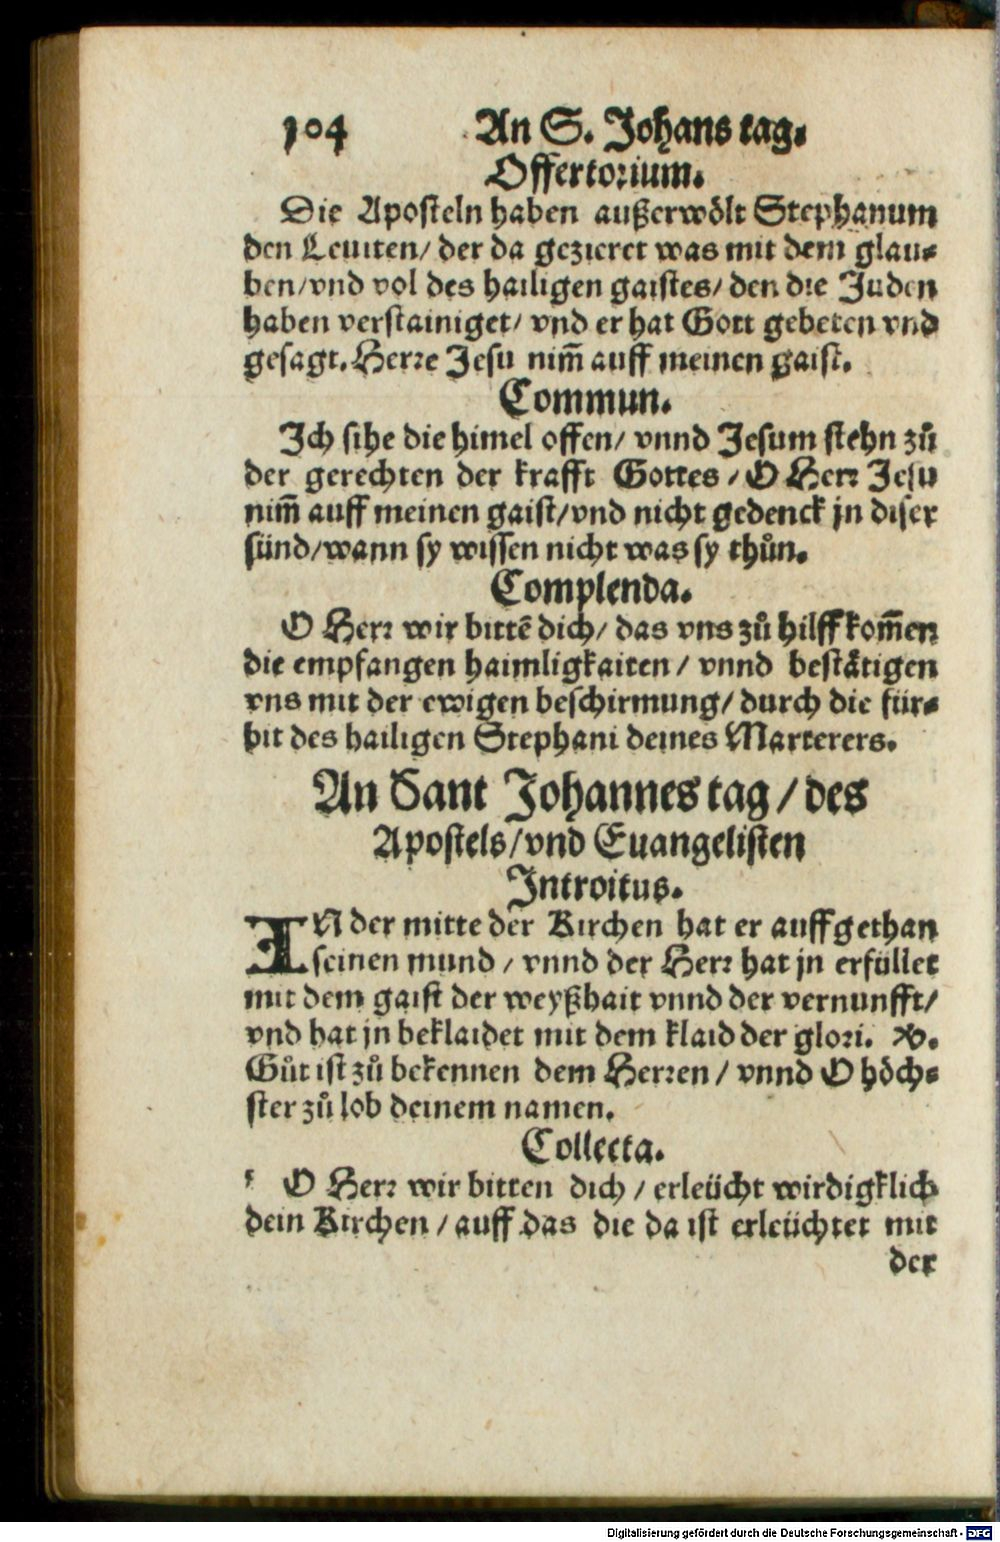 104 An S. Johans tag.
Offertorium.
Die Aposteln haben außerwoͤlt Stephanum
den Leuiten/ der da gezieret was mit dem glau⸗
ben/vnd vol des hailigen gaistes/ den die Juden
haben verstainiget/ vnd er hat Gott gebeten vnd
gesagt. Herꝛe Jesu nim̃ auff meinen gaist.
Commun.
Ich sihe die himel offen/ vnnd Jesum stehn zů
der gerechten der krafft Gottes / O Herꝛ Jesu
nim̃ auff meinen gaist/vnd nicht gedenck jn diser
sünd/wann sy wissen nicht was sy thůn.
Complenda.
O Herꝛ wir bittẽ dich/ das vns zů hilff kom̃en
die empfangen haimligkaiten / vnnd bestaͤtigen
vns mit der ewigen beschirmung/ durch die für⸗
bit des hailigen Stephani deines Marterers.
An Sant Johannes tag / des
Apostels/vnd Euangelisten
Introitus.
IN der mitte der Kirchen hat er auffgethan
seinen mund / vnnd der Herꝛ hat jn erfüllet
mit dem gaist der weyßhait vnnd der vernunfft/
vnd hat jn beklaidet mit dem klaid der gloꝛi. ℣.
Gůt ist zů bekennen dem Herꝛen / vnnd O hoͤch⸗
ster zů lob deinem namen.
Collecta.
O Herꝛ wir bitten dich / erleücht wirdigklich
dein Kirchen / auff das die da ist erleüchtet mit
der
Digitalisierung gefördert durch die Deutsche Forschungsgemeinschaft - DFG